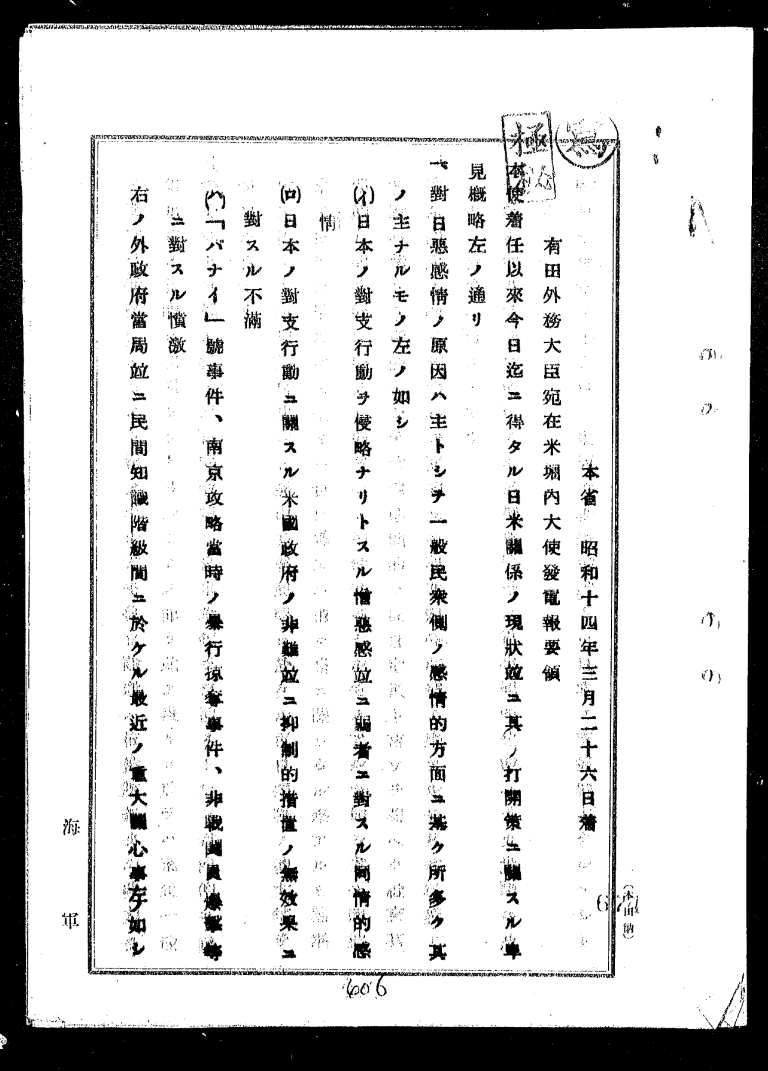 寫
極秘
本省 昭和十四年三月二十六日着
有田外務大臣宛在米堀內大使發電報要領
本使着任以來今日迄ニ得タル日米關係ノ現狀竝ニ其ノ打開策ニ關スル卑
見槪略左ノ通リ
一、對日惡感情ノ原因ハ主トシテ一般民衆側ノ感情的方面ニ基ク所多ク其
ノ主ナルモノ左ノ如シ
(イ)日本ノ對支行動ヲ侵略ナリトスル憎惡感竝ニ弱者ニ對スル同情的感
情
(ロ)日本ノ對支行動ニ關スル米國政府ノ非難竝ニ抑制的措置ノ無效果ニ
對スル不滿
(ハ)「パナイ」號事件、南京攻略當時ノ暴行掠奪事件、非戰鬪員爆擊等
ニ對スル憤激
右ノ外政府當局竝ニ民間知識階級間ニ於ケル最近ノ重大關心事左ノ如シ
海軍
606